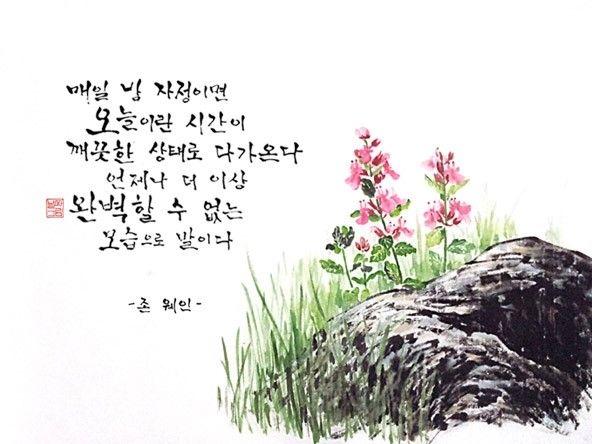 매일 밤 자정이면
오늘이란 시간이
깨끗한 상태로 다가온다
언제나 더 이상
완벽할 수 없는
모습으로 말이다
-존 웨인-